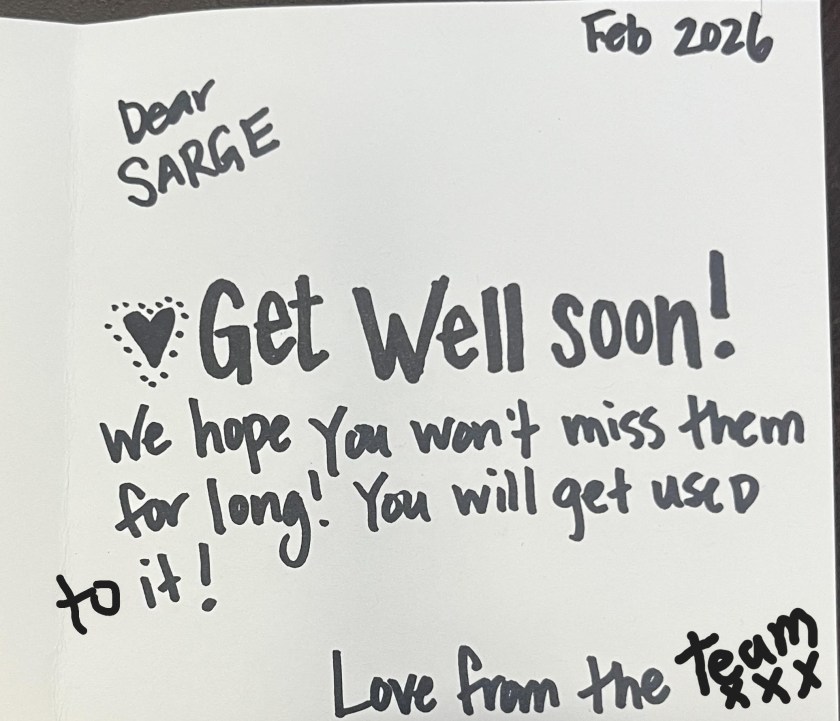 Feb 2026
Dear
SARGE
Get Well soon!
We hope you won't miss them
for long! You will get used
to it!
Love from the team
xxx